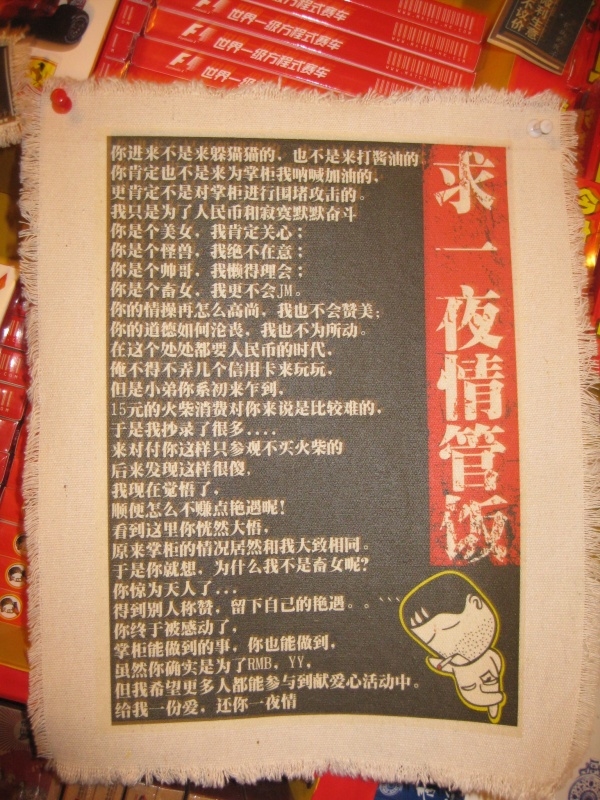 世界一级方程式赛车
F1 世界一级方程式赛车
F1 世界一级方程式赛车
F1 世界一级方程式赛车
求一夜情管饭
你进来不是来躲猫猫的，也不是来打酱油的
你肯定也不是来为掌柜我呐喊加油的，
更肯定不是对掌柜进行围堵攻击的。
我只是为了人民币和寂寞默默奋斗
你是个美女，我肯定关心；
你是个怪兽，我绝不在意；
你是个帅哥，我懒得理会；
你是个畜女，我更不会JM。
你的情操再怎么高尚，我也不会赞美；
你的道德如何沦丧，我也不为所动。
在这个处处都要人民币的时代，
俺不得不弄几个信用卡来玩玩，
但是小弟你系初来乍到，
15元的火柴消费对你来说是比较难的，
于是我抄录了很多....
来对付你这样只参观不买火柴的
后来发现这样很傻，
我现在觉悟了，
顺便怎么不赚点艳遇呢！
看到这里你恍然大悟，
原来掌柜的情况居然和我大致相同。
于是你就想，为什么我不是畜女呢？
你惊为天人了...
得到别人称赞，留下自己的艳遇。。```
你终于被感动了，
掌柜能做到的事，你也能做到，
虽然你确实是为了RMB，YY，
但我希望更多人都能参与到献爱心活动中。
给我一份爱，还你一夜情